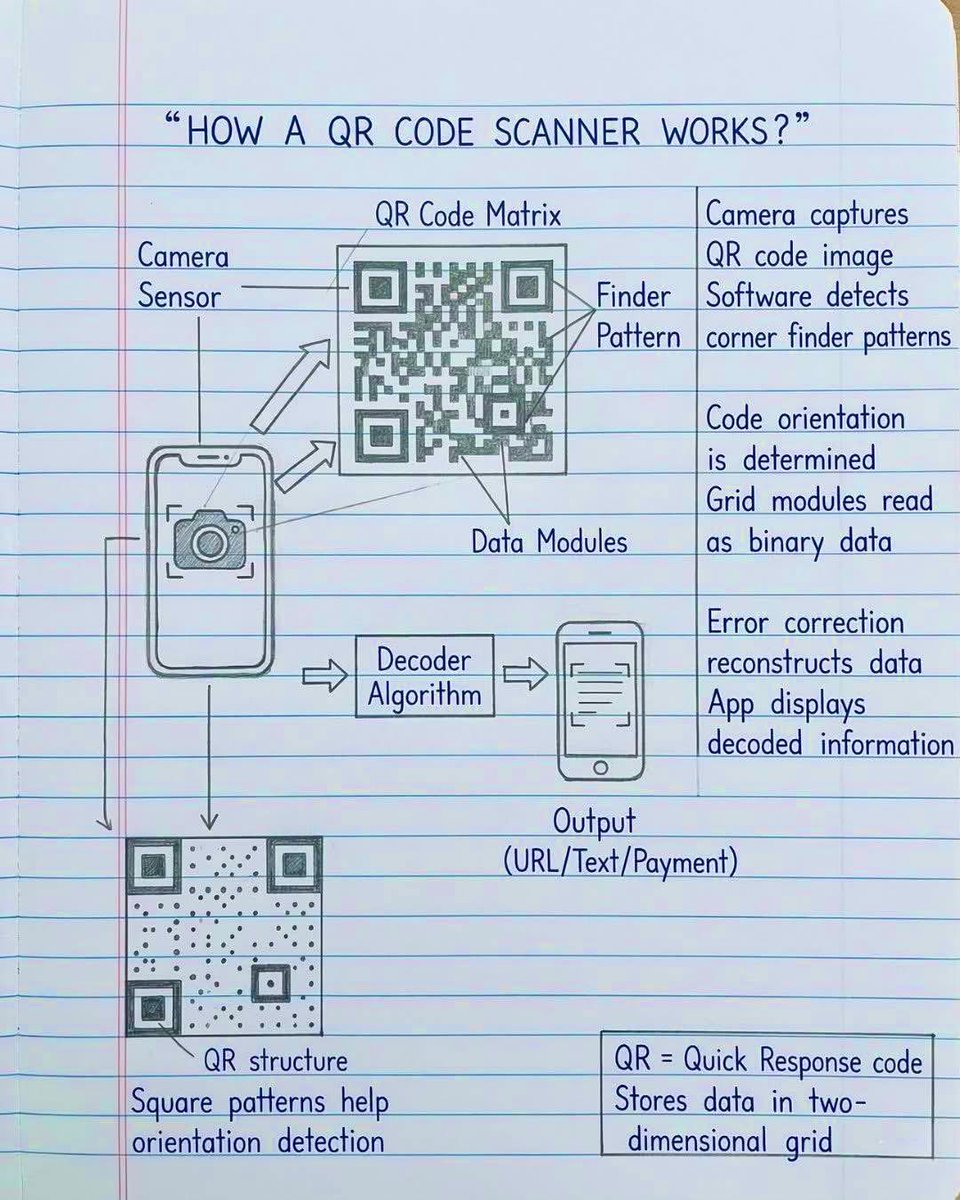 “HOW A QR CODE SCANNER WORKS?”
QR Code Matrix
Camera
Sensor
Finder
Pattern
Data Modules
Decoder
Algorithm
Output
(URL/Text/Payment)
QR structure
Square patterns help
orientation detection
Camera captures
QR code image
Software detects
corner finder patterns
Code orientation
is determined
Grid modules read
as binary data
Error correction
reconstructs data
App displays
decoded information
QR = Quick Response code
Stores data in two-
dimensional grid